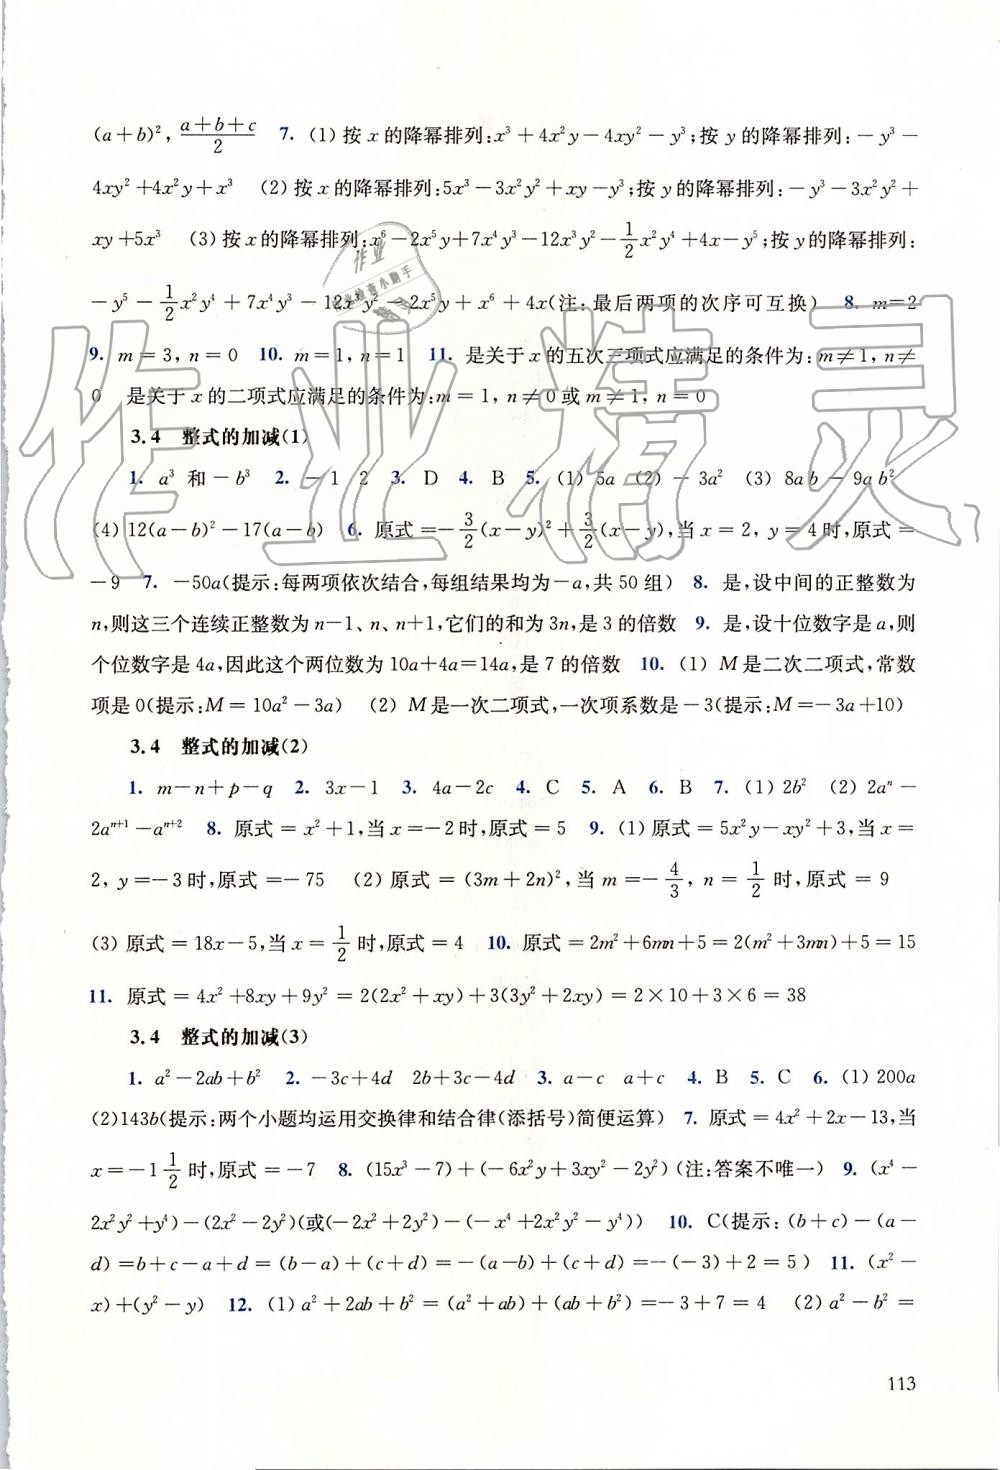 (a+b)², (a+b+c)/2 7. (1) 按 x 的降幂排列:x³+4x²y-4xy²-y³;按 y 的降幂排列:-y³-
4xy²+4x²y+x³ (2) 按 x 的降幂排列:5x³-3x²y²+xy-y³;按 y 的降幂排列:-y³-3x²y²+
xy+5x³ (3) 按 x 的降幂排列:x⁶-2x⁵y+7x⁴y³-12x³y²-1/2x²y⁴+4x-y⁵;按 y 的降幂排列:
-y⁵-1/2x²y⁴+7x⁴y³-12x³y²-2x⁵y+x⁶+4x(注:最后两项的次序可互换) 8. m=2
9. m=3, n=0 10. m=1, n=1 11. 是关于 x 的五次三项式应满足的条件为:m≠1, n≠
0 是关于 x 的二项式应满足的条件为:m=1, n≠0 或 m≠1, n=0
3.4 整式的加减(1)
1. a³ 和-b³ 2. -1 2 3. D 4. B 5. (1) 5a (2) -3a² (3) 8ab-9ab²
(4) 12(a-b)²-17(a-b) 6. 原式=-3/2(x-y)²+3/2(x-y),当 x=2, y=4 时,原式=
-9 7. -50a(提示:每两项依次结合,每组结果均为-a,共 50 组) 8. 是,设中间的正整数为
n,则这三个连续正整数为 n-1、n、n+1,它们的和为 3n,是 3 的倍数 9. 是,设十位数字是 a,则
个位数字是 4a,因此这个两位数为 10a+4a=14a,是 7 的倍数 10. (1) M 是二次二项式,常数
项是 0(提示:M=10a²-3a) (2) M 是一次二项式,一次项系数是-3(提示:M=-3a+10)
3.4 整式的加减(2)
1. m-n+p-q 2. 3x-1 3. 4a-2c 4. C 5. A 6. B 7. (1) 2b² (2) 2aⁿ-
2aⁿ⁺¹-aⁿ⁺² 8. 原式=x²+1,当 x=-2 时,原式=5 9. (1) 原式=5x²y-xy²+3,当 x=
2, y=-3 时,原式=-75 (2) 原式=(3m+2n)²,当 m=-4/3, n=1/2 时,原式=9
(3) 原式=18x-5,当 x=1/2 时,原式=4 10. 原式=2m²+6mn+5=2(m²+3mn)+5=15
11. 原式=4x²+8xy+9y²=2(2x²+xy)+3(3y²+2xy)=2×10+3×6=38
3.4 整式的加减(3)
1. a²-2ab+b² 2. -3c+4d 2b+3c-4d 3. a-c a+c 4. B 5. C 6. (1) 200a
(2)143b(提示:两个小题均运用交换律和结合律(添括号)简便运算) 7. 原式=4x²+2x-13,当
x=-1 1/2 时,原式=-7 8. (15x³-7)+(-6x²y+3xy²-2y²)(注:答案不唯一) 9. (x⁴-
2x²y²+y⁴)-(2x²-2y²)(或(-2x²+2y²)-(-x⁴+2x²y²-y⁴)) 10. C(提示:(b+c)-(a-
d)=b+c-a+d=(b-a)+(c+d)=-(a-b)+(c+d)=-(-3)+2=5) 11. (x²-
x)+(y²-y) 12. (1) a²+2ab+b²=(a²+ab)+(ab+b²)=-3+7=4 (2) a²-b²=
113
作业精灵